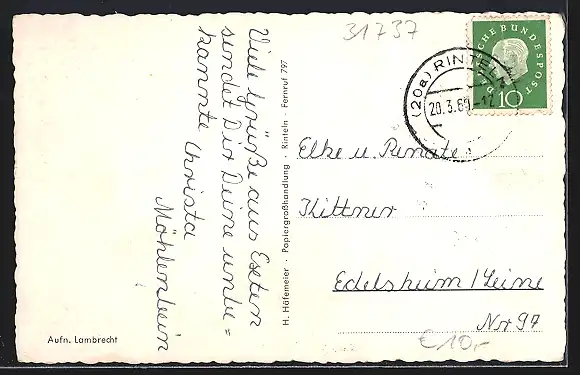 31737
Viele Grüße aus Exten
sendet Dir Deine unbe=
kannte Christa
Möhlenbein
H. Häfemeier · Papiergroßhandlung · Rinteln · Fernruf 797
DEUTSCHE BUNDESPOST
10
(20a) RINTELN
20.3.60-12
Elke u. Renate
Kittner
Edelsheim/Leine
Nr 97
€10,-
Aufn. Lambrecht